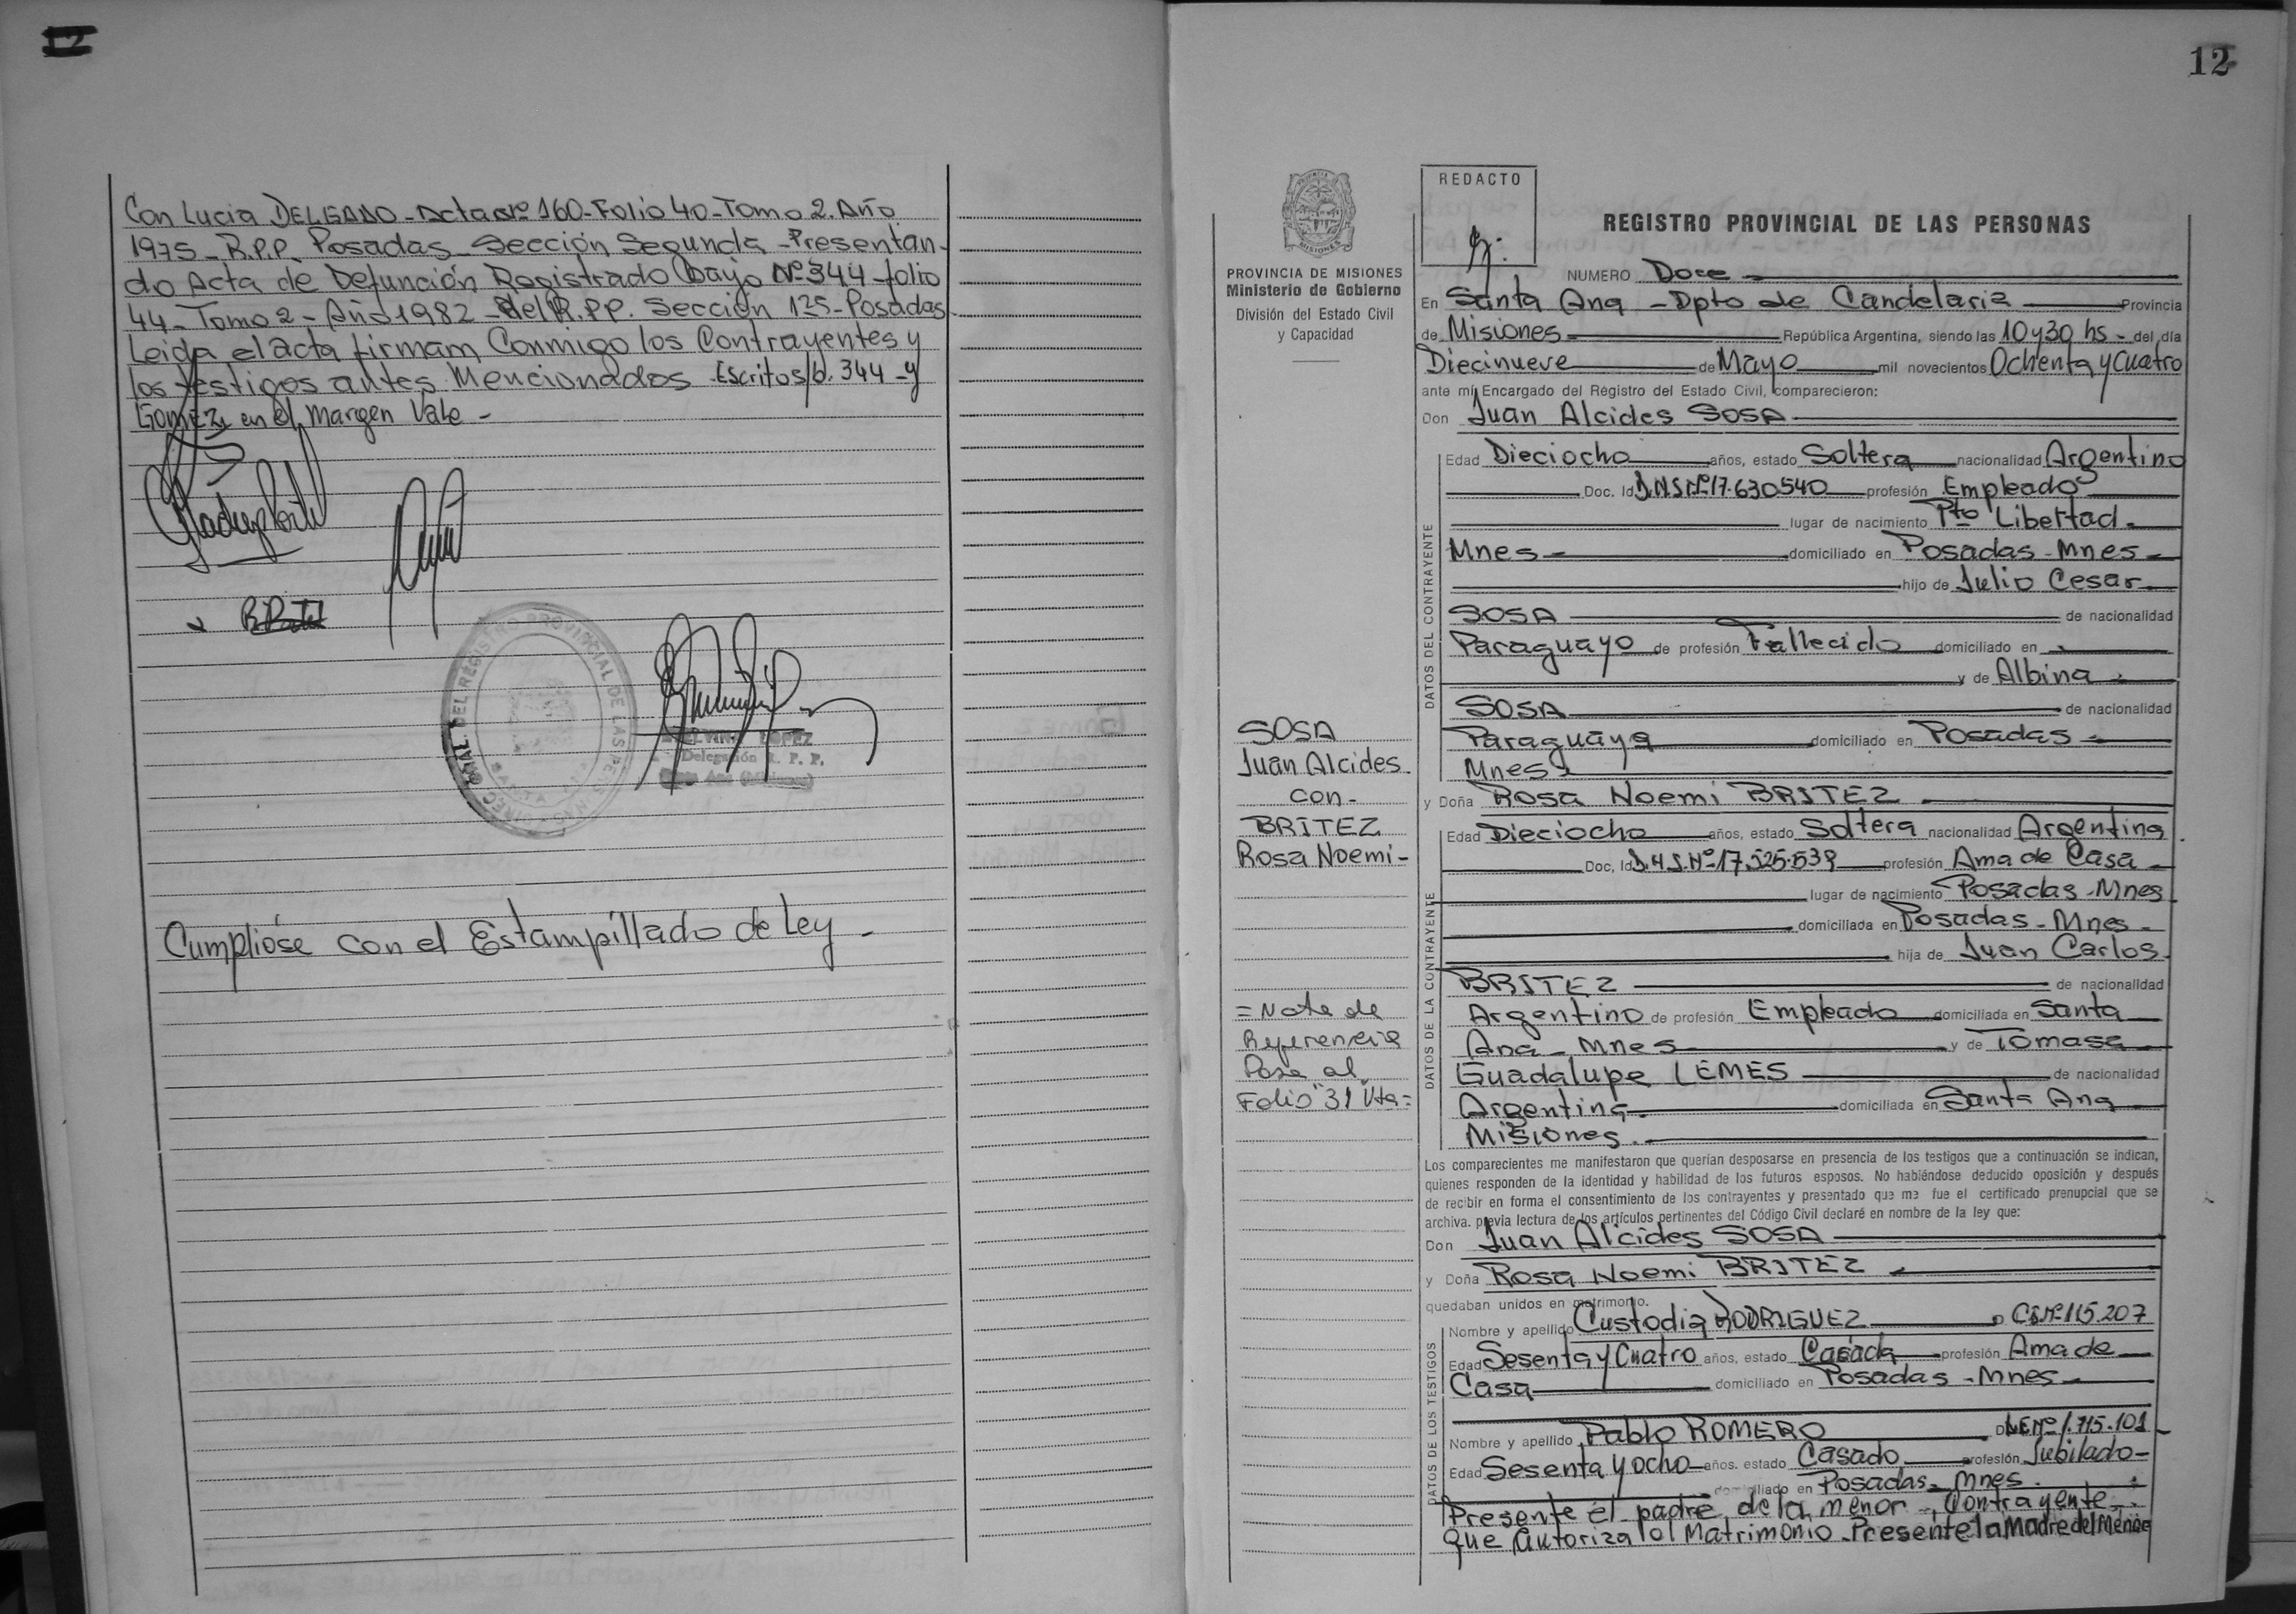 12
Con Lucia DELGADO - Acta Nº 160 - Folio 40 - Tomo 2. Año
1975 - R.P.P. Posadas Sección Segunda - Presentan-
do Acta de Defunción Registrado bajo Nº 344 - folio
44 - Tomo 2 - Año 1982 - del R.P.P. Sección 1ra - Posadas
Leida el acta firmam Conmigo los Contrayentes y
los testigos antes Mencionados. Escritos/b. 344 - y
GOMEZ, en el margen Vale -
DEL REGISTRO PROVINCIAL DE LAS PERSONAS
LOPEZ
Delegación R. P. P.
Santa Ana (Misiones)
Cumpliose con el Estampillado de Ley -
12
PROVINCIA DE MISIONES
Ministerio de Gobierno
División del Estado Civil
y Capacidad
SOSA
Juan Alcides
con -
BRITEZ
Rosa Noemi -
= Nota de
Referencia
Pasa al
Folio "31 Vta =
REDACTO
REGISTRO PROVINCIAL DE LAS PERSONAS
NUMERO Doce
En Santa Ana - Dpto de Candelaria Provincia
de Misiones República Argentina, siendo las 10 y 30 hs - del día
Diecinueve de Mayo mil novecientos Ochenta y Cuatro
ante mí Encargado del Registro del Estado Civil, comparecieron:
Don Juan Alcides SOSA
DATOS DEL CONTRAYENTE
Edad Dieciocho años, estado Soltera nacionalidad Argentino
Doc. Id D.N.I Nº 17.630540 profesión Empleado
lugar de nacimiento Pto Libertad -
Mnes - domiciliado en Posadas - Mnes -
hijo de Julio Cesar
SOSA de nacionalidad
Paraguayo de profesión Fallecido domiciliado en
y de Albina
SOSA de nacionalidad
Paraguaya domiciliado en Posadas -
Mnes
y Doña Rosa Noemi BRITEZ
DATOS DE LA CONTRAYENTE
Edad Dieciocho años, estado Soltera nacionalidad Argentina
Doc, Id D.N.I. Nº 17.525.539 profesión Ama de Casa -
lugar de nacimiento Posadas - Mnes
domiciliada en Posadas - Mnes -
hija de Juan Carlos
BRITEZ de nacionalidad
Argentino de profesión Empleado domiciliada en Santa
Ana - Mnes y de Tomasa
Guadalupe LEMES de nacionalidad
Argentina domiciliada en Santa Ana
Misiones.
Los comparecientes me manifestaron que querían desposarse en presencia de los testigos que a continuación se indican,
quienes responden de la identidad y habilidad de los futuros esposos. No habiéndose deducido oposición y después
de recibir en forma el consentimiento de los contrayentes y presentado que me fue el certificado prenupcial que se
archiva. previa lectura de los artículos pertinentes del Código Civil declaré en nombre de la ley que:
Don Juan Alcides SOSA
y Doña Rosa Noemi BRITEZ
quedaban unidos en matrimonio.
DATOS DE LOS TESTIGOS
Nombre y apellido Custodia RODRIGUEZ D C.I Nº 115.207
Edad Sesenta y Cuatro años, estado Casada profesión Ama de
Casa domiciliado en Posadas - Mnes
Nombre y apellido Pablo ROMERO D L.E Nº 1.715.101
Edad Sesenta y ocho años. estado Casado profesión Jubilado -
domiciliado en Posadas - Mnes.
Presente el padre de la menor - Contrayente -
que autoriza el Matrimonio - Presente la Madre del Menor